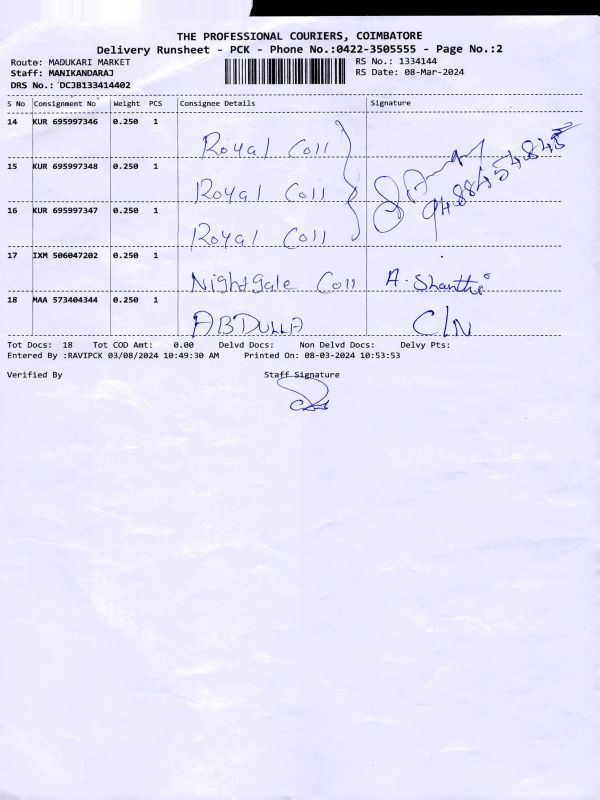 THE PROFESSIONAL COURIERS, COIMBATORE
Delivery Runsheet - PCK - Phone No.:0422-3505555 - Page No.:2
Route: MADUKARI MARKET RS No.: 1334144
Staff: MANIKANDARAJ RS Date: 08-Mar-2024
DRS No.: DCJB133414402
S No Consignment No Weight PCS Consignee Details Signature
14 KUR 695997346 0.250 1 Royal Coll
15 KUR 695997348 0.250 1 Royal Coll
16 KUR 695997347 0.250 1 Royal Coll
17 IXM 506047202 0.250 1 Nightgale Coll A. Shanthi
18 MAA 573404344 0.250 1 ABDULLA C/N
Tot Docs: 18 Tot COD Amt: 0.00 Delvd Docs: Non Delvd Docs: Delvy Pts:
Entered By :RAVIPCK 03/08/2024 10:49:30 AM Printed On: 08-03-2024 10:53:53
Verified By Staff Signature